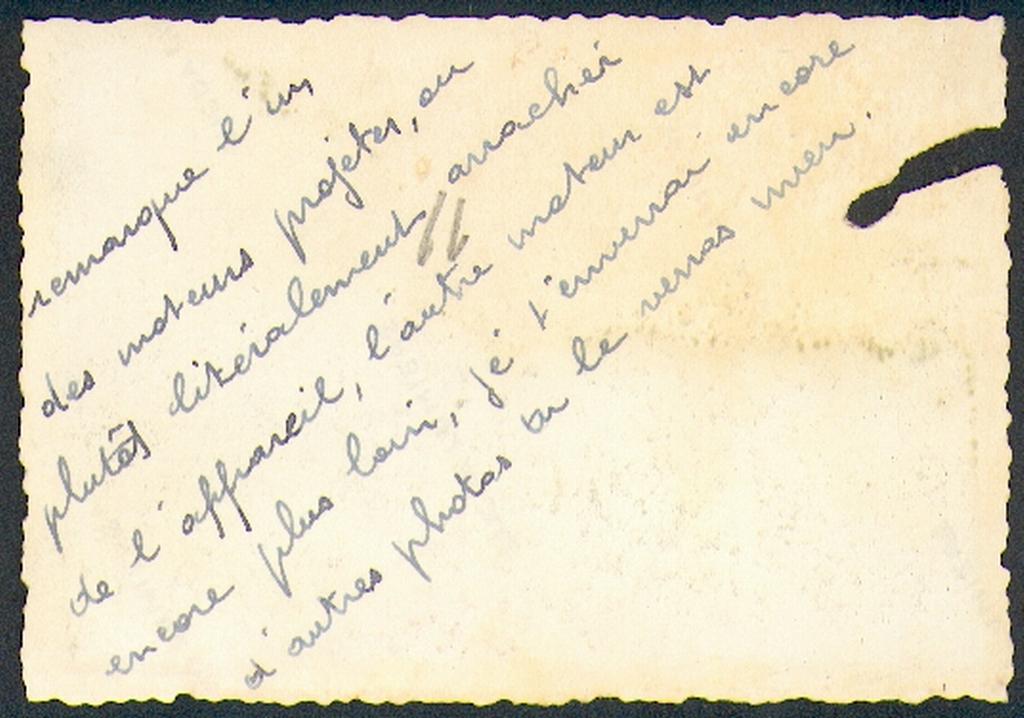 remarque l'un
des moteurs projetés, ou
plutôt litéralement arraché
de l'appareil, l'autre moteur est
encore plus loin, je t'enverrai encore
d'autres photos ou le verras mieu.
11